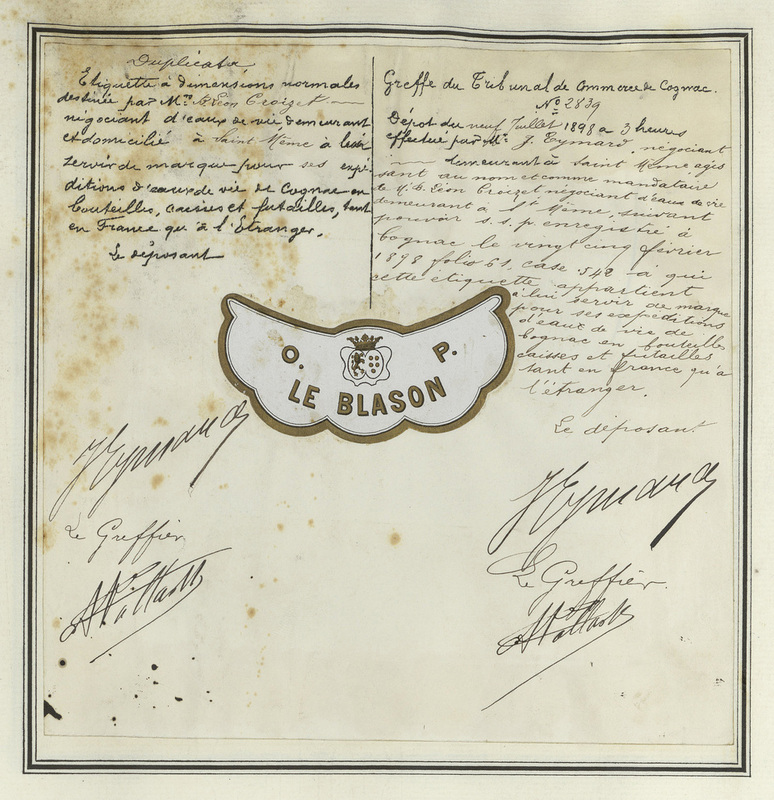 Duplicata
Etiquette à dimensions normales
destinée par Mr Léon Croizet
négociant d'eaux de vie demeurant
et domicilié à Saint Même à lui
servir de marque pour ses expé-
ditions d'eaux de vie de Cognac en
bouteilles, caisses et futailles, tant
en France qu'à l'Etranger.
Le déposant
JEymard
Le Greffier
Greffe du Tribunal de Commerce de Cognac.
No 2839
Dépôt du neuf Juillet 1898 à 3 heures
effectué par Mr J. Eymard, négociant
demeurant à Saint Même agis
sant au nom et comme mandataire
de Mr Léon Croizet négociant d'eaux de vie
demeurant à St Même, suivant
pouvoir s. s. p. enregistré à
Cognac le vingt cinq février
1898 folio 61, case 542 à qui
cette étiquette appartient
à lui servir de marque
pour ses expéditions
d'eaux de vie de
Cognac en bouteilles
caisses et futailles
tant en France qu'à
l'étranger.
Le déposant
JEymard
Le Greffier.
O. P.
LE BLASON